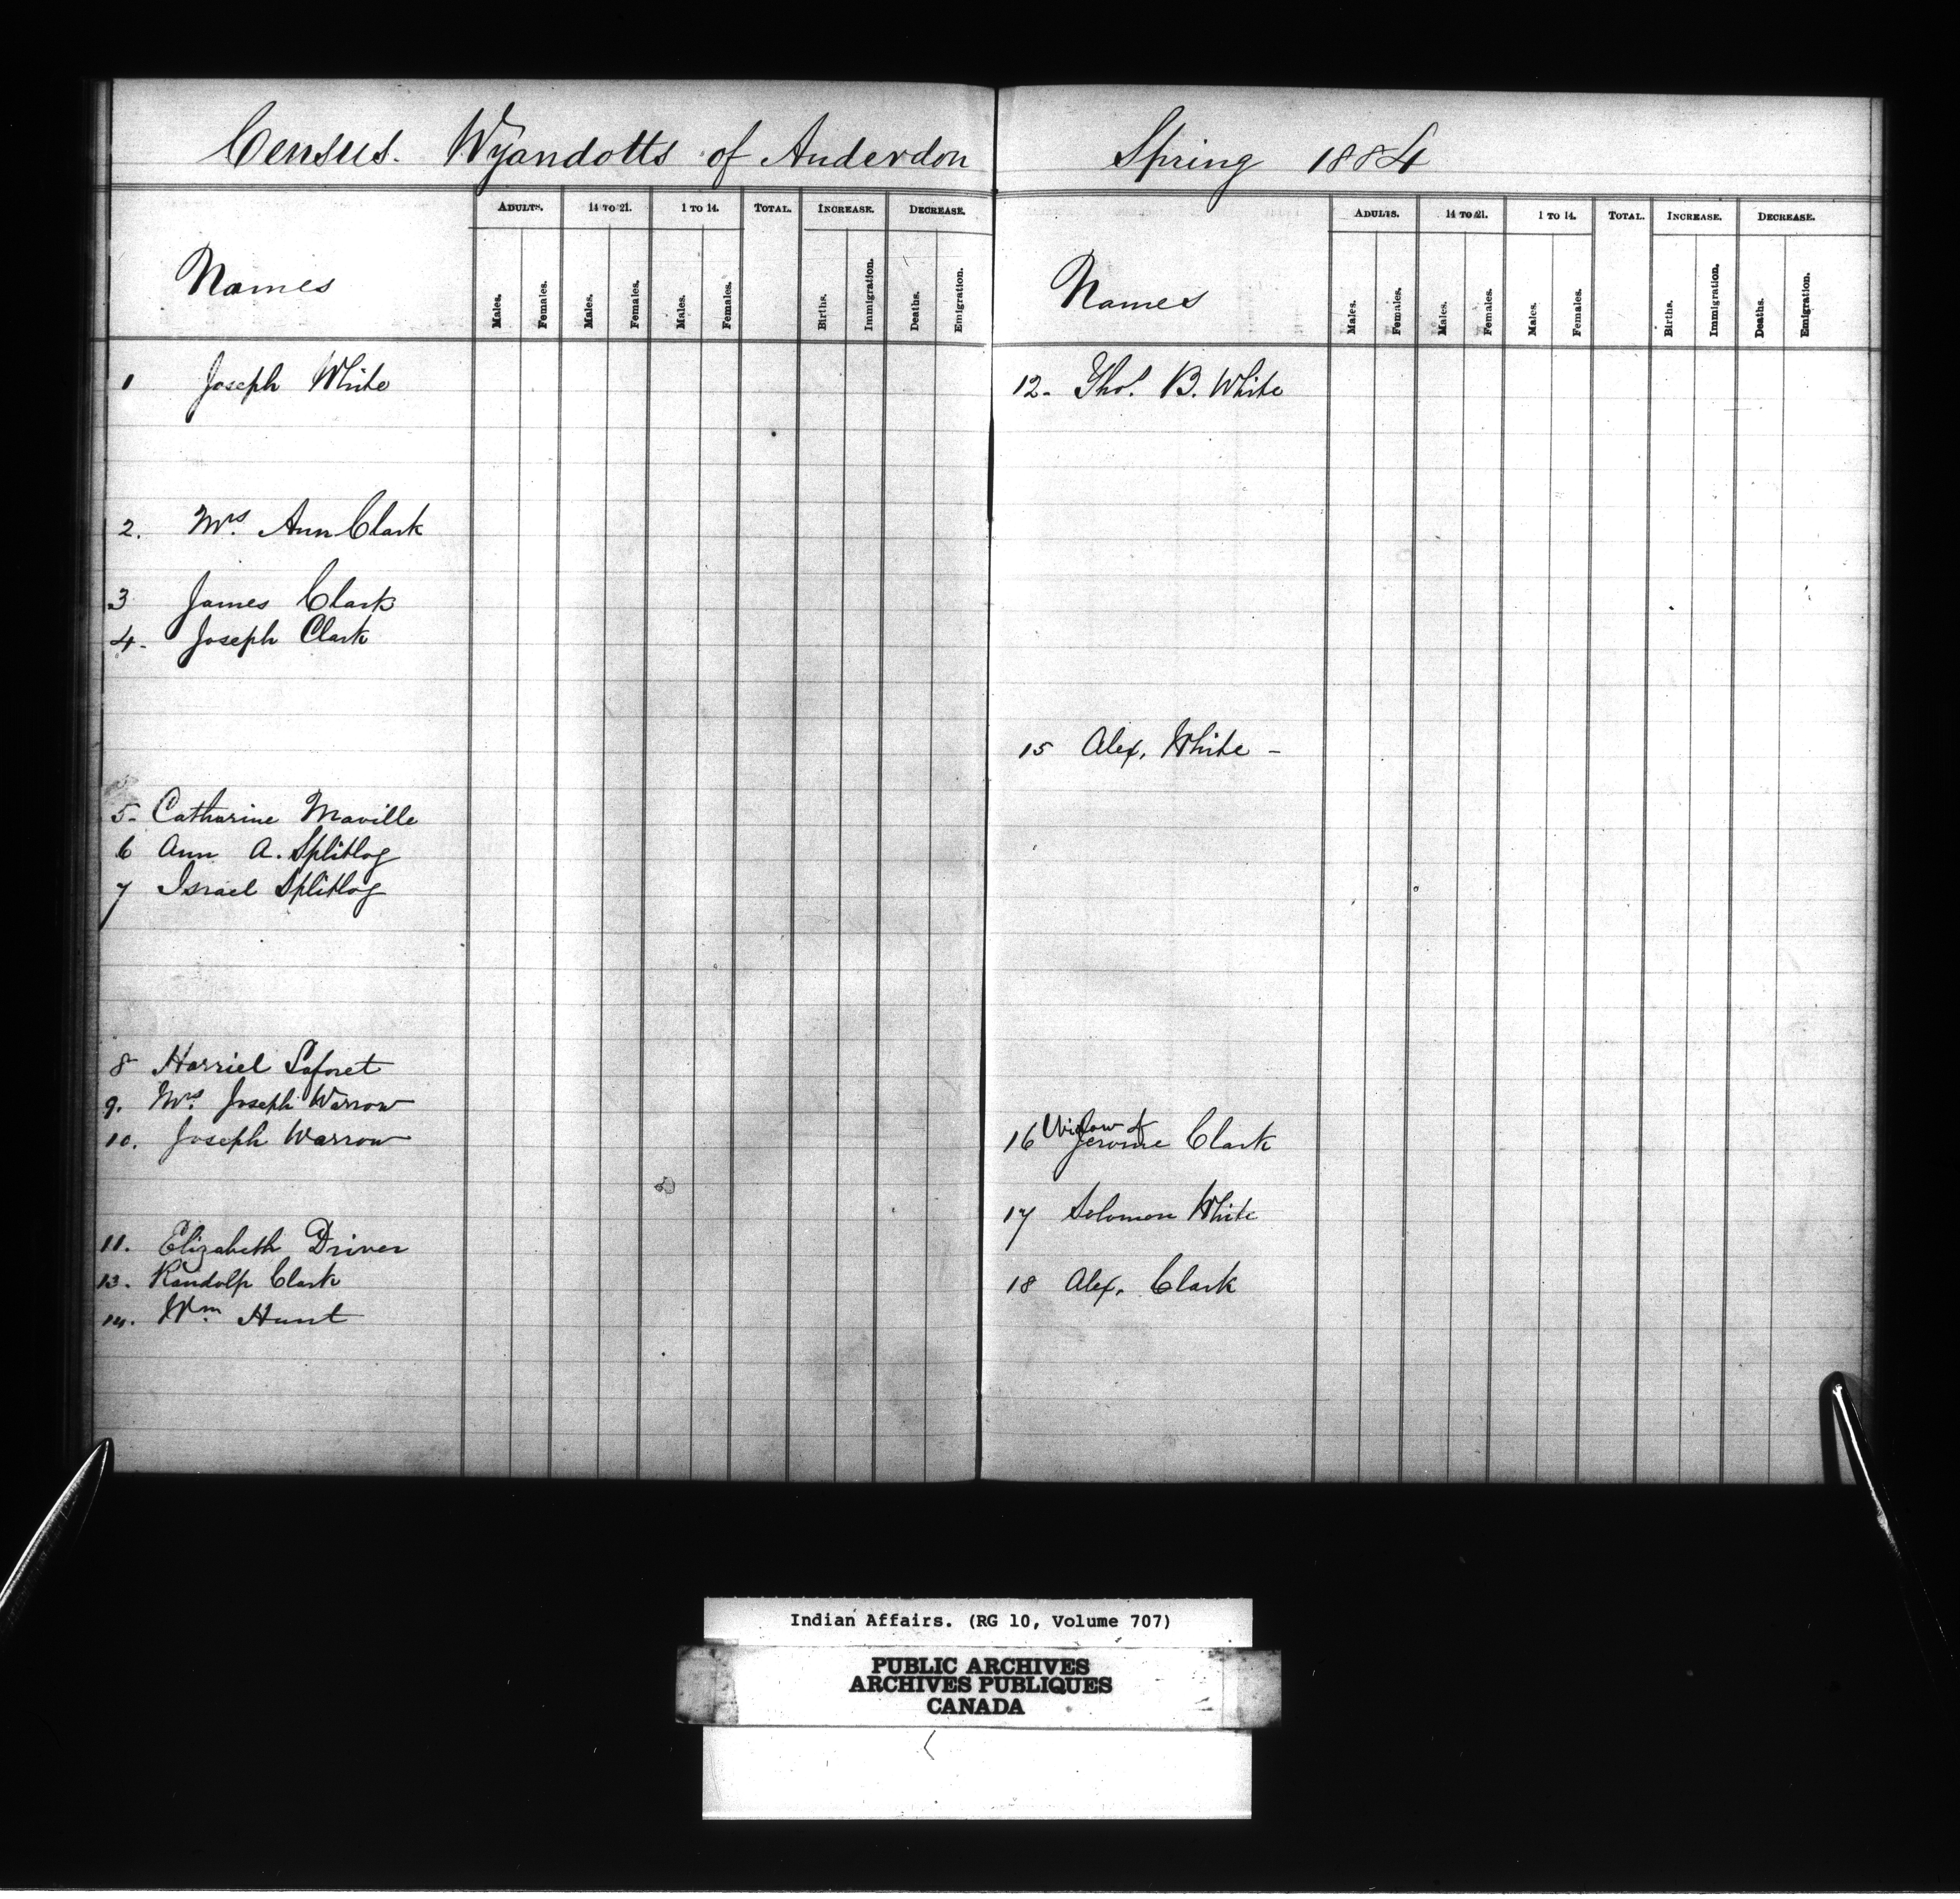 Census. Wyandotts of Anderdon
Names
ADULTS. 14 TO 21. 1 TO 14. TOTAL. INCREASE. DECREASE.
Males. Females. Males. Females. Males. Females. Births. Immigration. Deaths. Emigration.
1 Joseph White
2. Mrs. Ann Clark
3 James Clark
4. Joseph Clark
5- Catharine Maville
6 Ann A. Splitlog
7 Israel Splitlog
8 Harriet Laforet
9. Mrs. Joseph Warrow
10. Joseph Warrow
11. Elizabeth Driver
13. Randolph Clark
14. Wm. Hunt
Spring 1884
Names
ADULTS. 14 TO 21. 1 TO 14. TOTAL. INCREASE. DECREASE.
Males. Females. Males. Females. Males. Females. Births. Immigration. Deaths. Emigration.
12. Thos. B. White
15 Alex. White -
16 Widow of
Jerome Clark
17 Solomon White
18 Alex. Clark
Indian Affairs. (RG 10, Volume 707)
PUBLIC ARCHIVES
ARCHIVES PUBLIQUES
CANADA